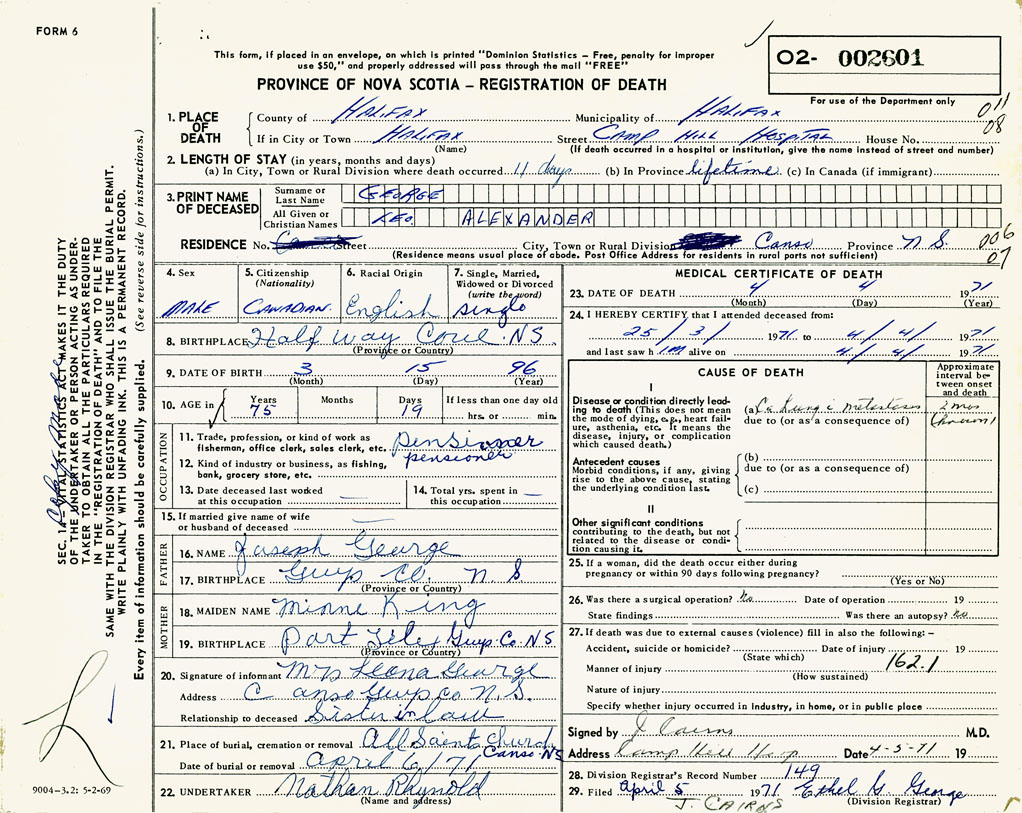 FORM 6
This form, if placed in an envelope, on which is printed "Dominion Statistics – Free, penalty for improper
use $50," and properly addressed will pass through the mail "FREE"
PROVINCE OF NOVA SCOTIA – REGISTRATION OF DEATH
02- 002601
For use of the Department only
011
08
1. PLACE OF DEATH
County of HALIFAX Municipality of HALIFAX
If in City or Town HALIFAX Street CAMP HILL HOSPITAL House No.
(Name) (If death occurred in a hospital or institution, give the name instead of street and number)
2. LENGTH OF STAY (in years, months and days)
(a) In City, Town or Rural Division where death occurred 11 days (b) In Province lifetime (c) In Canada (if immigrant)
3. PRINT NAME OF DECEASED
Surname or Last Name GEORGE
All Given or Christian Names LEO ALEXANDER
RESIDENCE No. Street City, Town or Rural Division Canso Province N S.
006
07
(Residence means usual place of abode. Post Office Address for residents in rural parts not sufficient)
4. Sex
MALE
5. Citizenship
(Nationality)
CANADIAN.
6. Racial Origin
English
7. Single, Married,
Widowed or Divorced
(write the word)
single
8. BIRTHPLACE Half Way Cove NS
(Province or Country)
9. DATE OF BIRTH 3 15 96
(Month) (Day) (Year)
10. AGE in
Years 75
Months
Days 19
If less than one day old
hrs. or min.
OCCUPATION
11. Trade, profession, or kind of work as
fisherman, office clerk, sales clerk, etc. pensioner
12. Kind of industry or business, as fishing,
bank, grocery store, etc. pensioner
13. Date deceased last worked
at this occupation —
14. Total yrs. spent in
this occupation. —
15. If married give name of wife
or husband of deceased —
FATHER
16. NAME Joseph George
17. BIRTHPLACE Guys Co. N S
(Province or Country)
MOTHER
18. MAIDEN NAME Minne King
19. BIRTHPLACE Guys. Co. NS
(Province or Country)
20. Signature of informant Mrs Leona George
Address Canso Guys co N.S.
Relationship to deceased Sister in law
21. Place of burial, cremation or removal All Saints Church
Canso NS
Date of burial or removal April 6/71
22. UNDERTAKER Nathan Rhynold
(Name and address)
MEDICAL CERTIFICATE OF DEATH
23. DATE OF DEATH 4 4 1971
(Month) (Day) (Year)
24. I HEREBY CERTIFY that I attended deceased from:
25/3/ 1971 to 4/4/ 1971
and last saw h im alive on 4/4/ 1971
CAUSE OF DEATH
Approximate
interval be-
tween onset
and death
I
Disease or condition directly lead-
ing to death (This does not mean
the mode of dying, e.g., heart fail-
ure, asthenia, etc. It means the
disease, injury, or complication
which caused death.)
(a) Ca Lung c metastases
due to (or as a consequence of)
2 mos
(known)
Antecedent causes
Morbid conditions, if any, giving
rise to the above cause, stating
the underlying condition last.
(b)
due to (or as a consequence of)
(c)
II
Other significant conditions
contributing to the death, but not
related to the disease or condi-
tion causing it.
25. If a woman, did the death occur either during
pregnancy or within 90 days following pregnancy?
(Yes or No)
26. Was there a surgical operation? No Date of operation 19
State findings Was there an autopsy? No
27. If death was due to external causes (violence) fill in also the following: –
Accident, suicide or homicide? Date of injury 19
(State which)
162.1
Manner of injury
(How sustained)
Nature of injury
Specify whether injury occurred in industry, in home, or in public place
Signed by J Cairns M.D.
Address Camp Hill Hosp Date 4-5-71 19
28. Division Registrar's Record Number 149
29. Filed April 5 1971 Ethel G. George
(Division Registrar)
J. CAIRNS
SEC. 14 – VITAL STATISTICS ACT MAKES IT THE DUTY
OF THE UNDERTAKER OR PERSON ACTING AS UNDER-
TAKER TO OBTAIN ALL THE PARTICULARS REQUIRED
IN THE "REGISTRATION OF DEATH" AND TO FILE THE
SAME WITH THE DIVISION REGISTRAR WHO SHALL ISSUE THE BURIAL PERMIT.
WRITE PLAINLY WITH UNFADING INK. THIS IS A PERMANENT RECORD.
Every item of information should be carefully supplied. (See reverse side for instructions.)
9004-3.2: 5-2-69